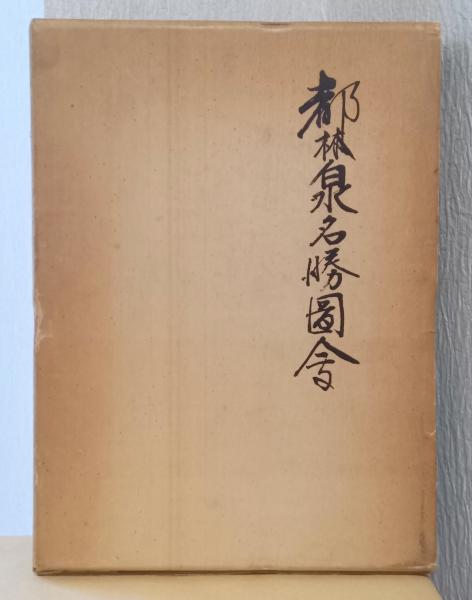 都林泉名勝圖會